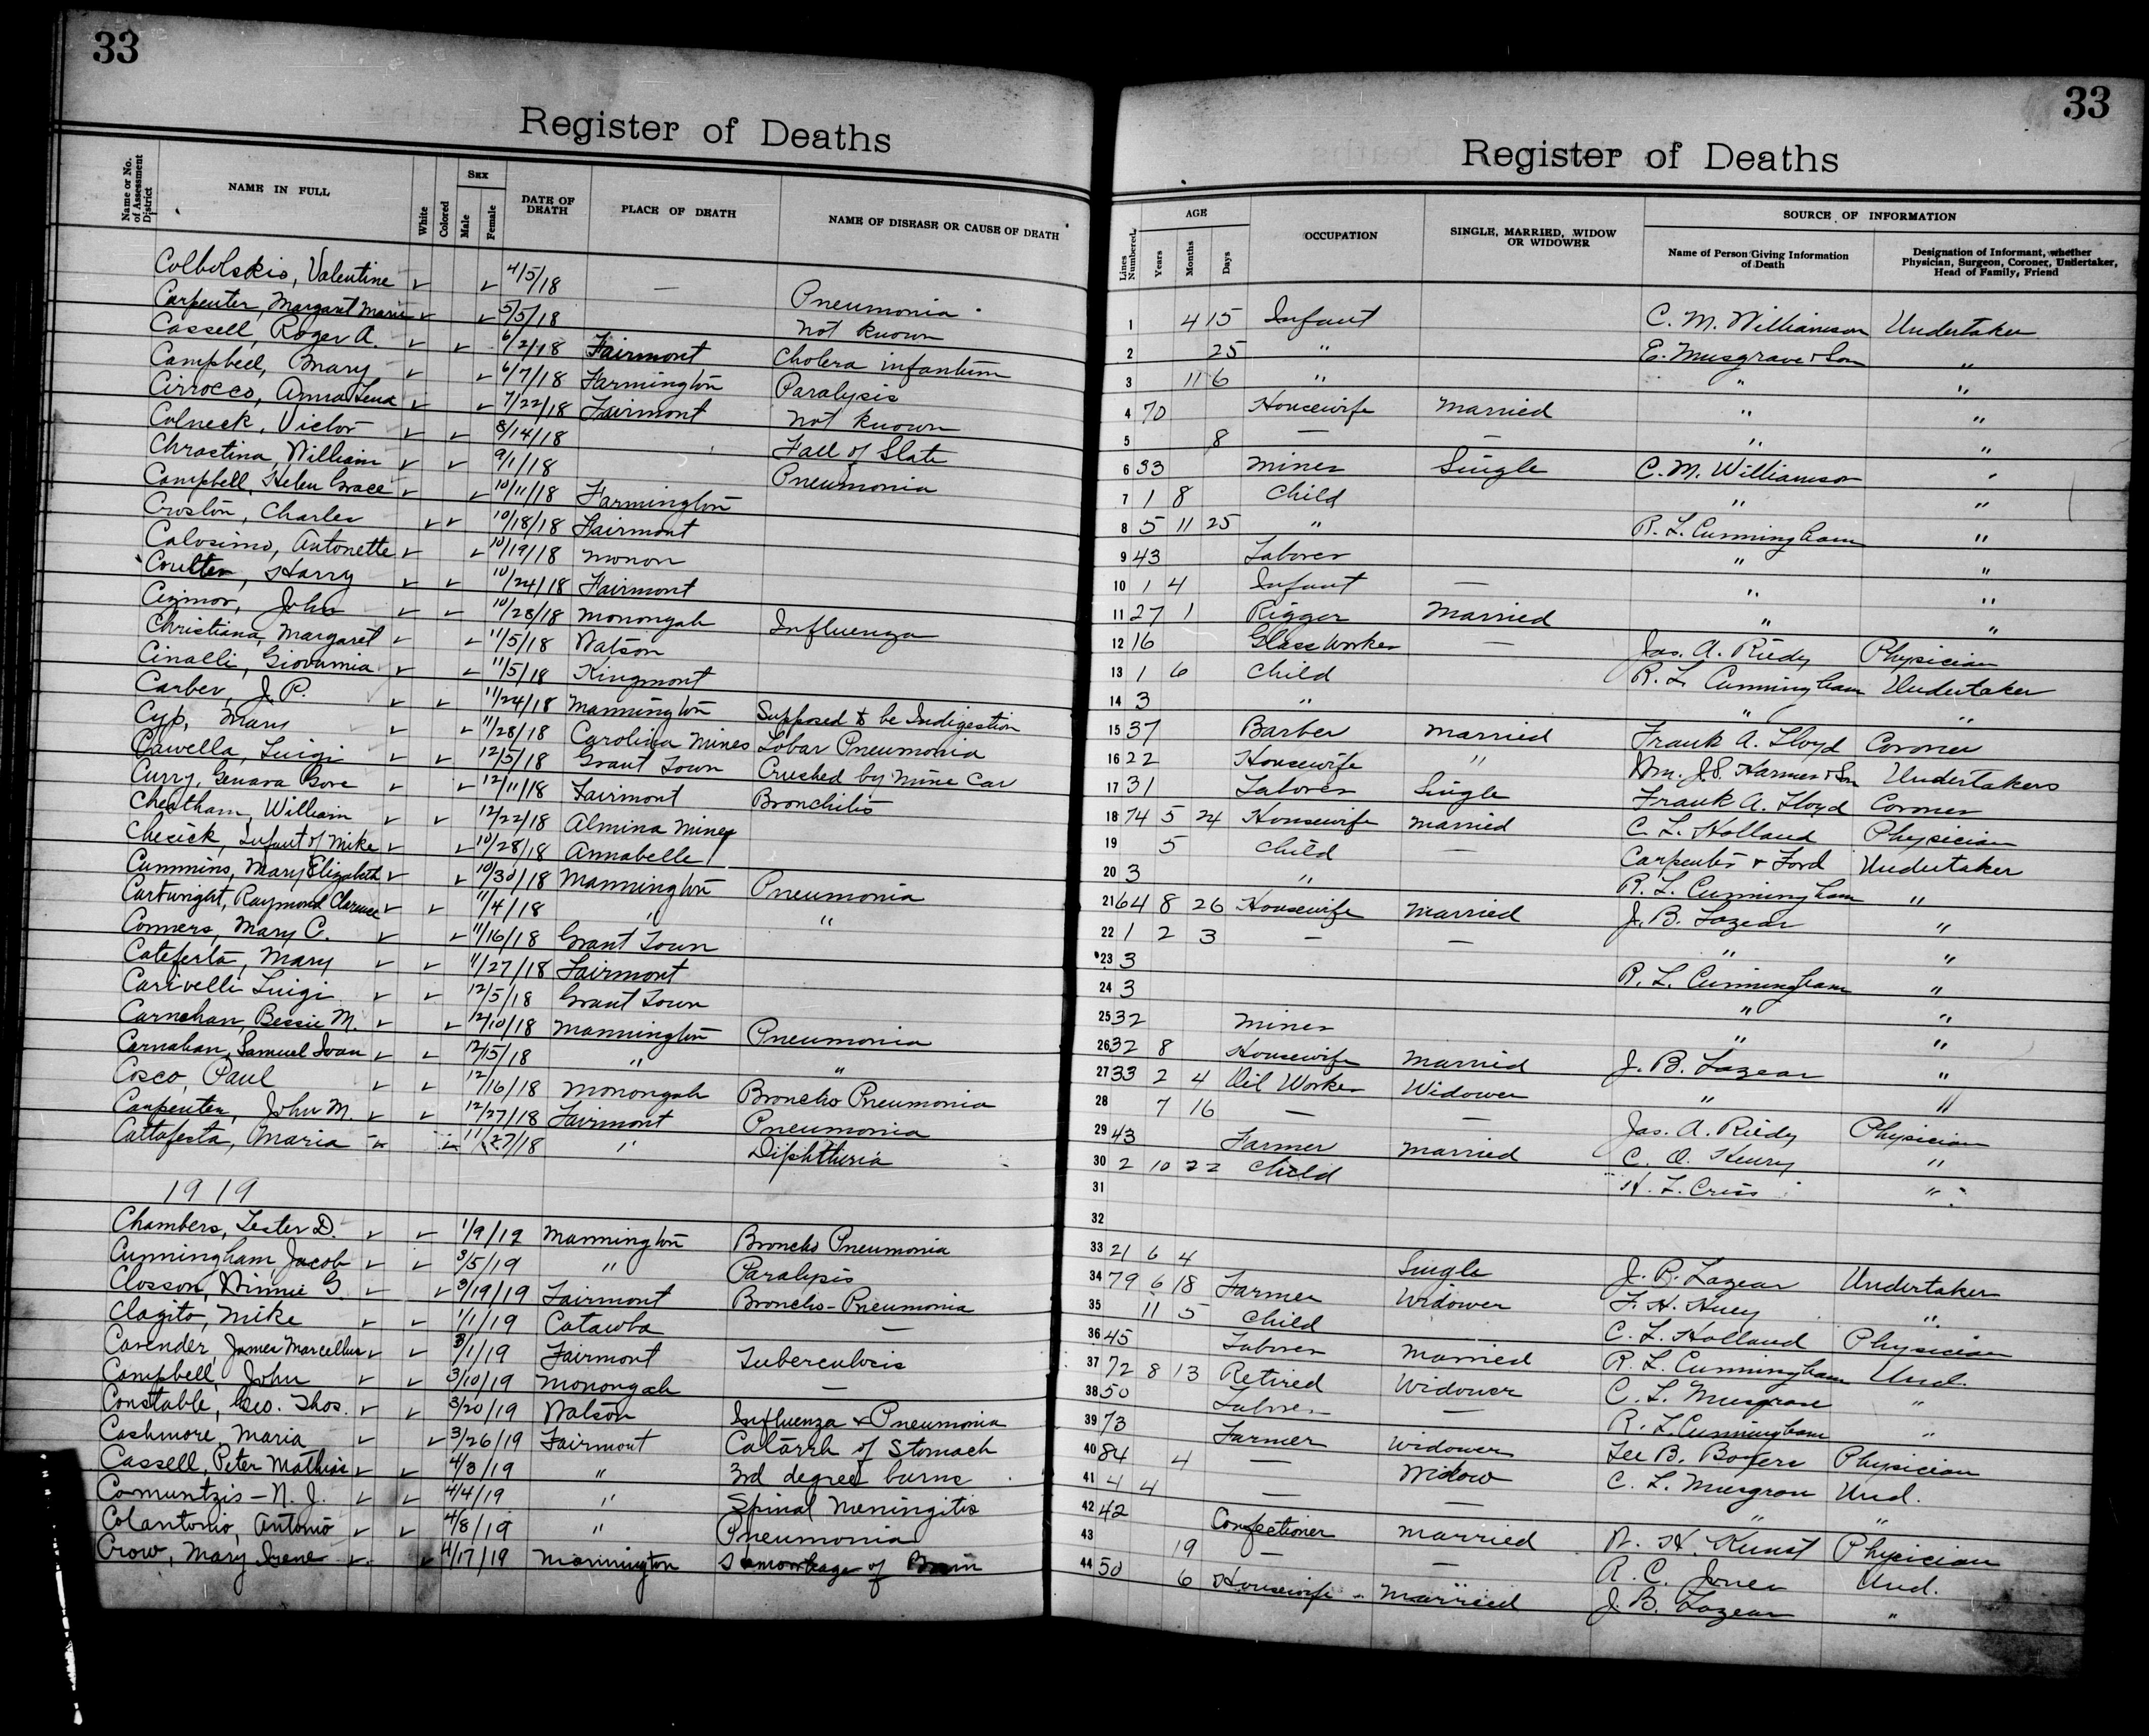 33
Register of Deaths
Name or No. of Assessment District
NAME IN FULL
White
Colored
Sex
Male
Female
DATE OF DEATH
PLACE OF DEATH
NAME OF DISEASE OR CAUSE OF DEATH
Colbolskis, Valentine ✓ ✓ 4/5/18 — Pneumonia
Carpenter, Margaret Marie ✓ ✓ 5/5/18 not known
Cassell, Roger A. ✓ ✓ 6/2/18 Fairmont Cholera infantum
Campbell, Mary ✓ ✓ 6/7/18 Farmington Paralysis
Cirrocco, Anna Lena ✓ ✓ 7/22/18 Fairmont not known
Colneck, Victor ✓ ✓ 8/14/18 Fall of Slate
Chrastina, William ✓ ✓ 9/1/18 Pneumonia
Campbell, Helen Grace ✓ ✓ 10/11/18 Farmington
Croston, Charles ✓ ✓ 10/18/18 Fairmont
Colosimo, Antonette ✓ ✓ 10/19/18 monon
Coulter, Harry ✓ ✓ 10/24/18 Fairmont
Cizmor, John ✓ ✓ 10/28/18 Monongah Influenza
Christiana, Margaret ✓ ✓ 11/5/18 Watson
Cinalli, Giovannia ✓ ✓ 11/5/18 Kingmont
Carber, J. P. ✓ ✓ 11/24/18 Mannington Supposed to be Indigestion
Cyp, Mary ✓ ✓ 11/28/18 Carolina Mines Lobar Pneumonia
Cawella, Luigi ✓ ✓ 12/5/18 Grant Town Crushed by Mine Car
Curry, Genara Gore ✓ ✓ 12/11/18 Fairmont Bronchitis
Cheatham, William ✓ ✓ 12/22/18 Almina Mines
Chesick, Infant of Mike ✓ ✓ 10/28/18 Annabelle
Cummins, Mary Elizabeth ✓ ✓ 10/30/18 Mannington Pneumonia
Cartwright, Raymond Clarence ✓ ✓ 11/4/18 " "
Conners, Mary C. ✓ ✓ 11/16/18 Grant Town
Cateferta, Mary ✓ ✓ 11/27/18 Fairmont
Carivelli Luigi ✓ ✓ 12/5/18 Grant Town
Carnehan, Bessie M. ✓ ✓ 12/10/18 Mannington Pneumonia
Carnahan, Samuel Ivan ✓ ✓ 12/15/18 " "
Cosco, Paul ✓ ✓ 12/16/18 Monongah Broncho Pneumonia
Carpenter, John M. ✓ ✓ 12/27/18 Fairmont Pneumonia
Cattafesta, Maria ✓ ✓ 11/27/18 " Diphtheria
1919
Chambers, Lester D. ✓ ✓ 1/9/19 Mannington Broncho Pneumonia
Cunningham, Jacob ✓ ✓ 3/5/19 " Paralysis
Closson, Winnie G. ✓ ✓ 3/19/19 Fairmont Broncho-Pneumonia
Clagito, Mike ✓ ✓ 1/1/19 Catawba —
Cavender, James Marcellus ✓ ✓ 3/1/19 Fairmont Tuberculosis
Campbell, John ✓ ✓ 3/10/19 Monongah —
Constable, Geo. Thos. ✓ ✓ 3/20/19 Watson Influenza & Pneumonia
Cashmore, Maria ✓ ✓ 3/26/19 Fairmont Catarrh of Stomach
Cassell, Peter Mathias ✓ ✓ 4/3/19 " 3rd degree burns
Comuntzis - N. J. ✓ ✓ 4/4/19 " Spinal Meningitis
Colantonio, Antonio ✓ ✓ 4/8/19 " Pneumonia
Crow, Mary Irene ✓ ✓ 4/17/19 Mannington Hamorrhage of Brain
33
Register of Deaths
Lines Numbered
AGE
Years
Months
Days
OCCUPATION
SINGLE, MARRIED, WIDOW OR WIDOWER
SOURCE OF INFORMATION
Name of Person Giving Information of Death
Designation of Informant, whether Physician, Surgeon, Coroner, Undertaker, Head of Family, Friend
1 4 15 Infant C. M. Williamson Undertaker
2 25 " E. Musgrave & Son "
3 11 6 " " "
4 70 Housewife Married " "
5 8 — — " "
6 33 Miner Single C. M. Williamson "
7 1 8 Child " "
8 5 11 25 " R. L. Cunningham "
9 43 Laborer " "
10 1 4 Infant — " "
11 27 1 Rigger Married " "
12 16 Glass Worker — Jas. A. Riedy Physician
13 1 6 Child R. L. Cunningham Undertaker
14 3 " " "
15 37 Barber Married Frank A. Lloyd Coroner
16 22 Housewife " Wm. J. S. Harmer & Son Undertakers
17 31 Laborer Single Frank A. Lloyd Coroner
18 74 5 24 Housewife Married C. L. Holland Physician
19 5 Child — Carpenter & Ford Undertaker
20 3 " R. L. Cunningham "
21 64 8 26 Housewife Married J. B. Lazear "
22 1 2 3 — — " "
23 3 R. L. Cunningham "
24 3 " "
25 32 Miner " "
26 32 8 Housewife Married J. B. Lazear "
27 33 2 4 Oil Worker Widower " "
28 7 16 — — Jas. A. Riedy Physician
29 43 Farmer Married C. O. Henry "
30 2 10 22 Child H. L. Criss "
31
32
33 21 6 4 Single J. B. Lazear Undertaker
34 79 6 18 Farmer Widower F. H. Huey "
35 11 5 Child C. L. Holland Physician
36 45 Laborer Married R. L. Cunningham Und.
37 72 8 13 Retired Widower C. L. Musgrave "
38 50 Laborer — R. L. Cunningham "
39 73 Farmer Widower Lee B. Boyers Physician
40 84 4 — Widow C. L. Musgrave Und.
41 4 4 — — " "
42 42 Confectioner Married W. H. Kunst Physician
43 19 — — R. C. Jones Und.
44 50 6 Housewife - Married J. B. Lazear "